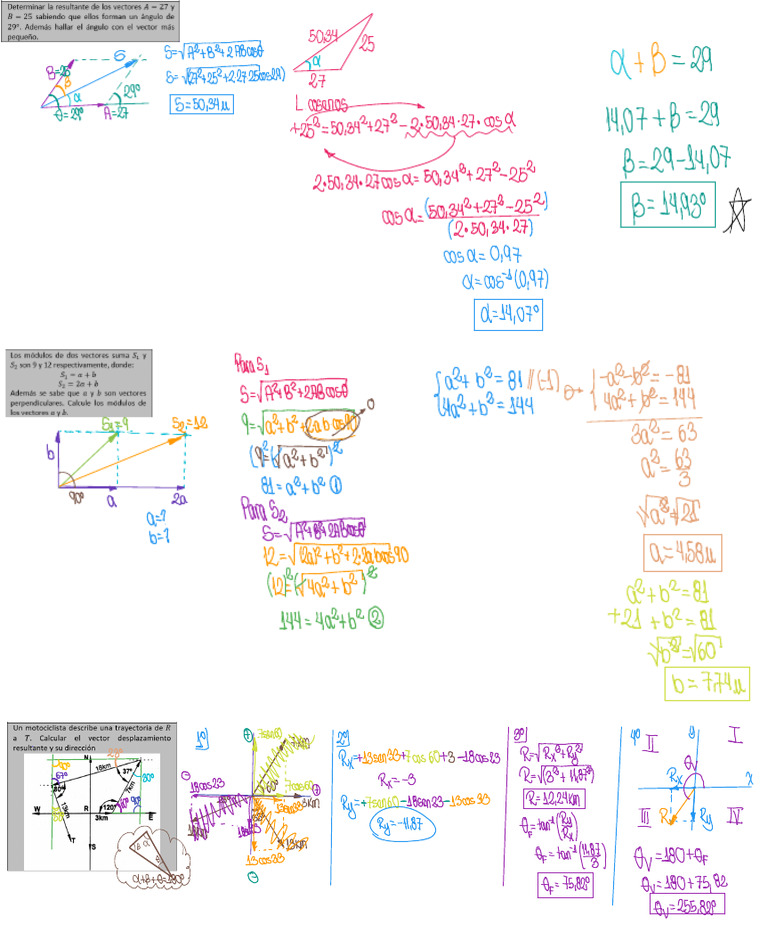 Determinar la resultante de los vectores A = 27 y
B = 25 sabiendo que ellos forman un ángulo de
29º. Además hallar el ángulo con el vector más
pequeño.
S
B=25
β
α
θ=29º
A=27
29º
S=√A²+B²+2ABcosθ
S=√27²+25²+2.27.25cos(29)
S=50,34u
50,34
25
α
27
L cosenos
+25²=50,34²+27²-2·50,34·27·cosα
2·50,34·27cosα=50,34²+27²-25²
cosα=(50,34²+27²-25²)
(2·50,34·27)
cosα=0,97
α=cos⁻¹(0,97)
α=14,07º
α+β=29
14,07+β=29
β=29-14,07
β=14,93º
Los módulos de dos vectores suma S₁ y
S₂ son 9 y 12 respectivamente, donde:
S₁ = a + b
S₂ = 2a + b
Además se sabe que a y b son vectores
perpendiculares. Calcule los módulos de
los vectores a y b.
S₁=9
S₂=12
b
90º
a
2a
a=?
b=?
Para S₁
S=√A²+B²+2ABcosθ
0
81=a²+b² ①
Para S₂
S=√A²+B²+2ABcosθ
12=√(2a)²+b²+2·2abcos90
(12)²=(√4a²+b²)²
144=4a²+b² ②
a²+b²=81 //(-1)
4a²+b²=144
-a²-b²=-81
4a²+b²=144
3a²=63
a²=63/3
√a²=√21
a=4,58u
a²+b²=81
+21+b²=81
√b²=√60
b=7,74u
Un motociclista describe una trayectoria de R
a T. Calcular el vector desplazamiento
resultante y su dirección
N
18km
37º
30º
67º
13km
120º
W
R
3km
E
T
S
α+β+θ=180º
1º
7sen60
7km
18cos23
60º
7cos60
3km
13km
13cos23
2º
Rx=+13sen23+7cos60+3-18cos23
Rx=-3
Ry=+7sen60-18sen23-13cos23
Ry=-11,87
3º
R=√Rx²+Ry²
R=√(3²+11,87²)
R=12,24km
θF=tan⁻¹(Ry/Rx)
θF=tan⁻¹(11,87/3)
θF=75,82º
4º
II
y
I
θv
Rx
x
III
R
Ry
IV
θv=180+θF
θv=180+75,82
θv=255,82º